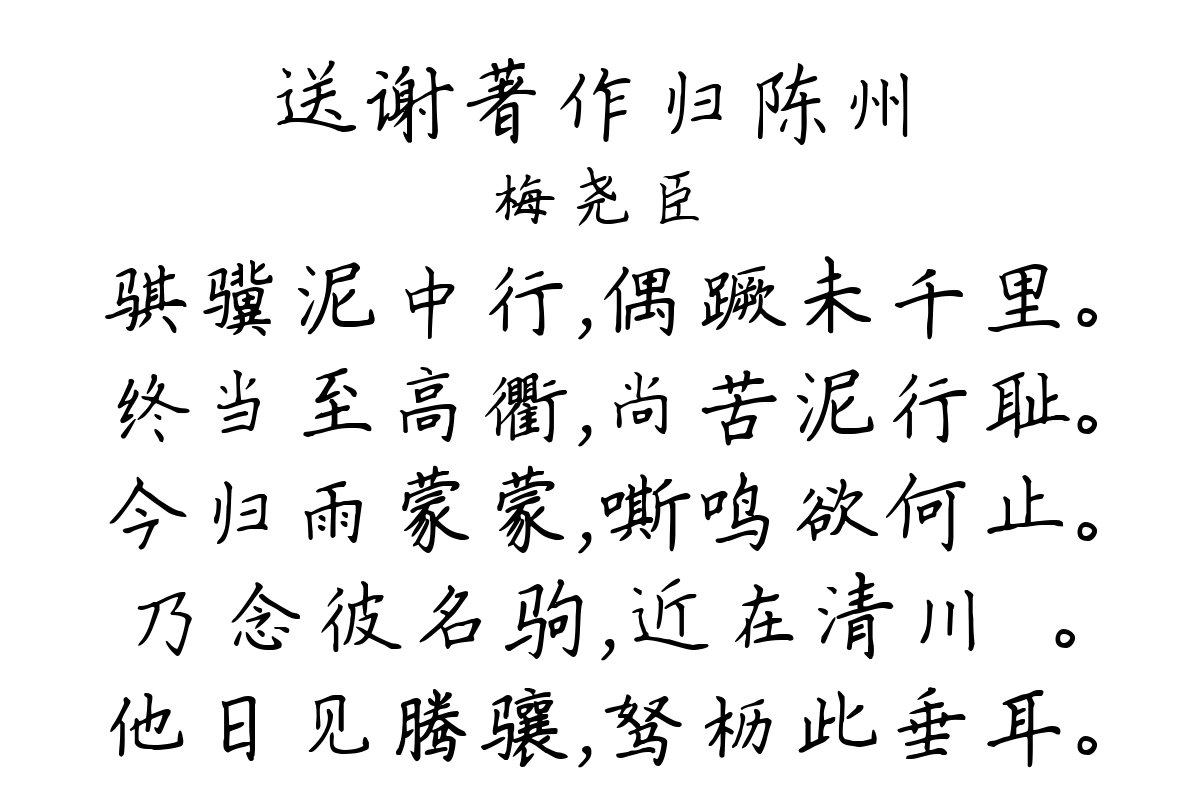 送谢著作归陈州
梅尧臣
骐骥泥中行,偶蹶未千里。
终当至高衢,尚苦泥行耻。
今归雨蒙蒙,嘶鸣欲何止。
乃念彼名驹,近在清川 。
他日见腾骧,驽枥此垂耳。